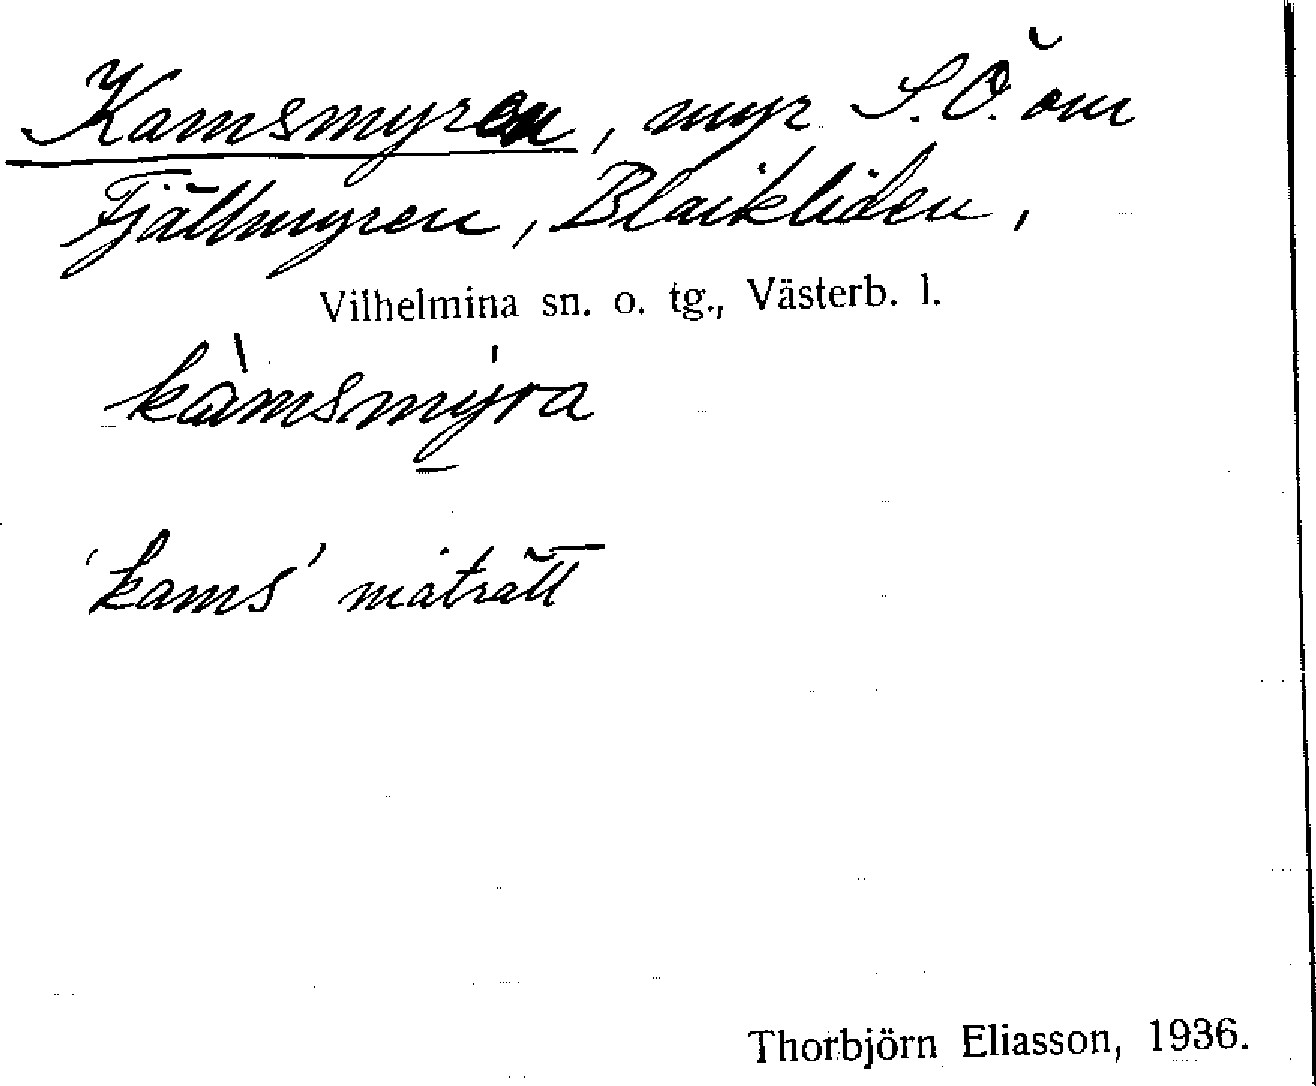 Kamsmyren, myr S.Ö. om
Fjällmyren, Blaikliden,
Vilhelmina sn. o. tg., Västerb. l.
kàmsmýra
'kams' maträtt
Thorbjörn Eliasson, 1936.